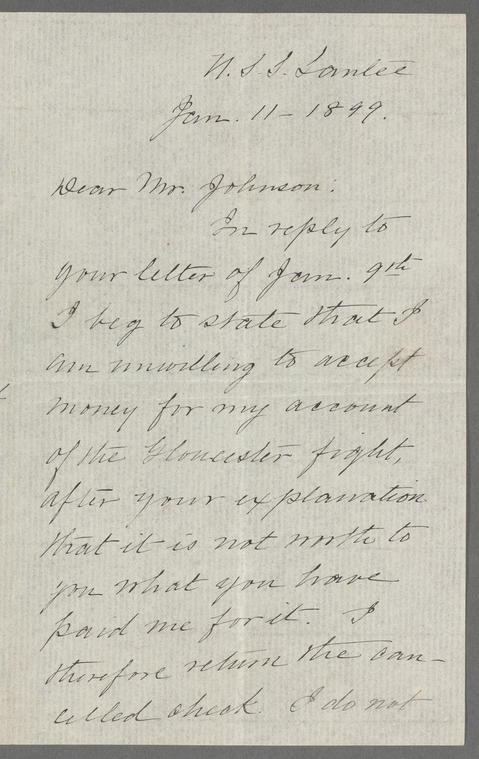 U.S.S. Santee
Jan. 11 - 1899.
Dear Mr. Johnson:
In reply to
your letter of Jan. 9th
I beg to state that I
am unwilling to accept
money for my account
of the Gloucester fight,
after your explanation
that it is not worth to
you what you have
paid me for it. I
therefore return the can-
celled check. I do not